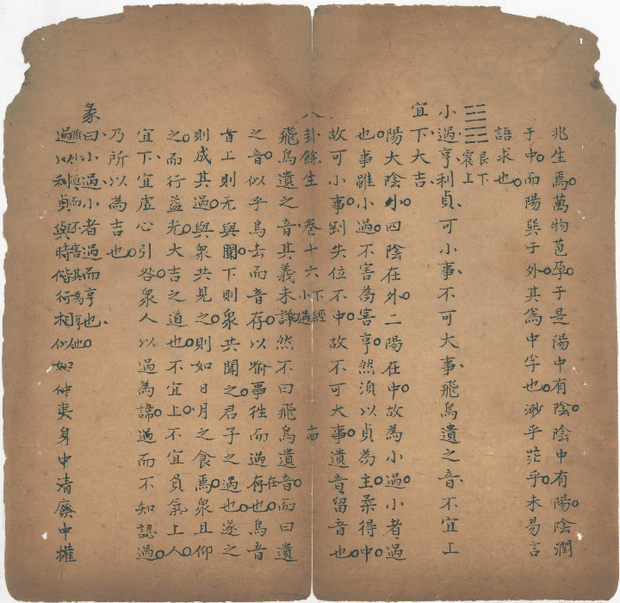 兆生焉萬物苞孕于是陽中有陰陰中有陽陰濶
于中而陽巽于外其為中孚也渺乎茫乎未易言
語求也
艮下
震上
小過亨利貞可小事不可大事飛鳥遺之音不宜上
宜下大吉
陽大陰小四陰在外二陽在中故為小過小者過
也事雖小過不害為害亨然須以貞為主柔得中
故可小事剛失位不中故不可大事遺音留音也
八卦餘生 卷十六 下經 小過 十四
飛鳥遺之音其義未詳然不曰飛鳥遺音在而曰遺
之音似乎鳥去而音存以喻事徃而過存也鳥音
音上則无與聞下則衆共聞之君子之過也遂之
則成其過與衆共見之則如日月之食焉衆且仰
之而行益光大吉之道也不宜上不宜負氣上人
宜下宜虛心引咎衆人以過為諱過而不知認過
乃所以為吉也
彖
曰小過小者過而亨也
過以利貞與時偕行相似如仲夷身中清廢中權